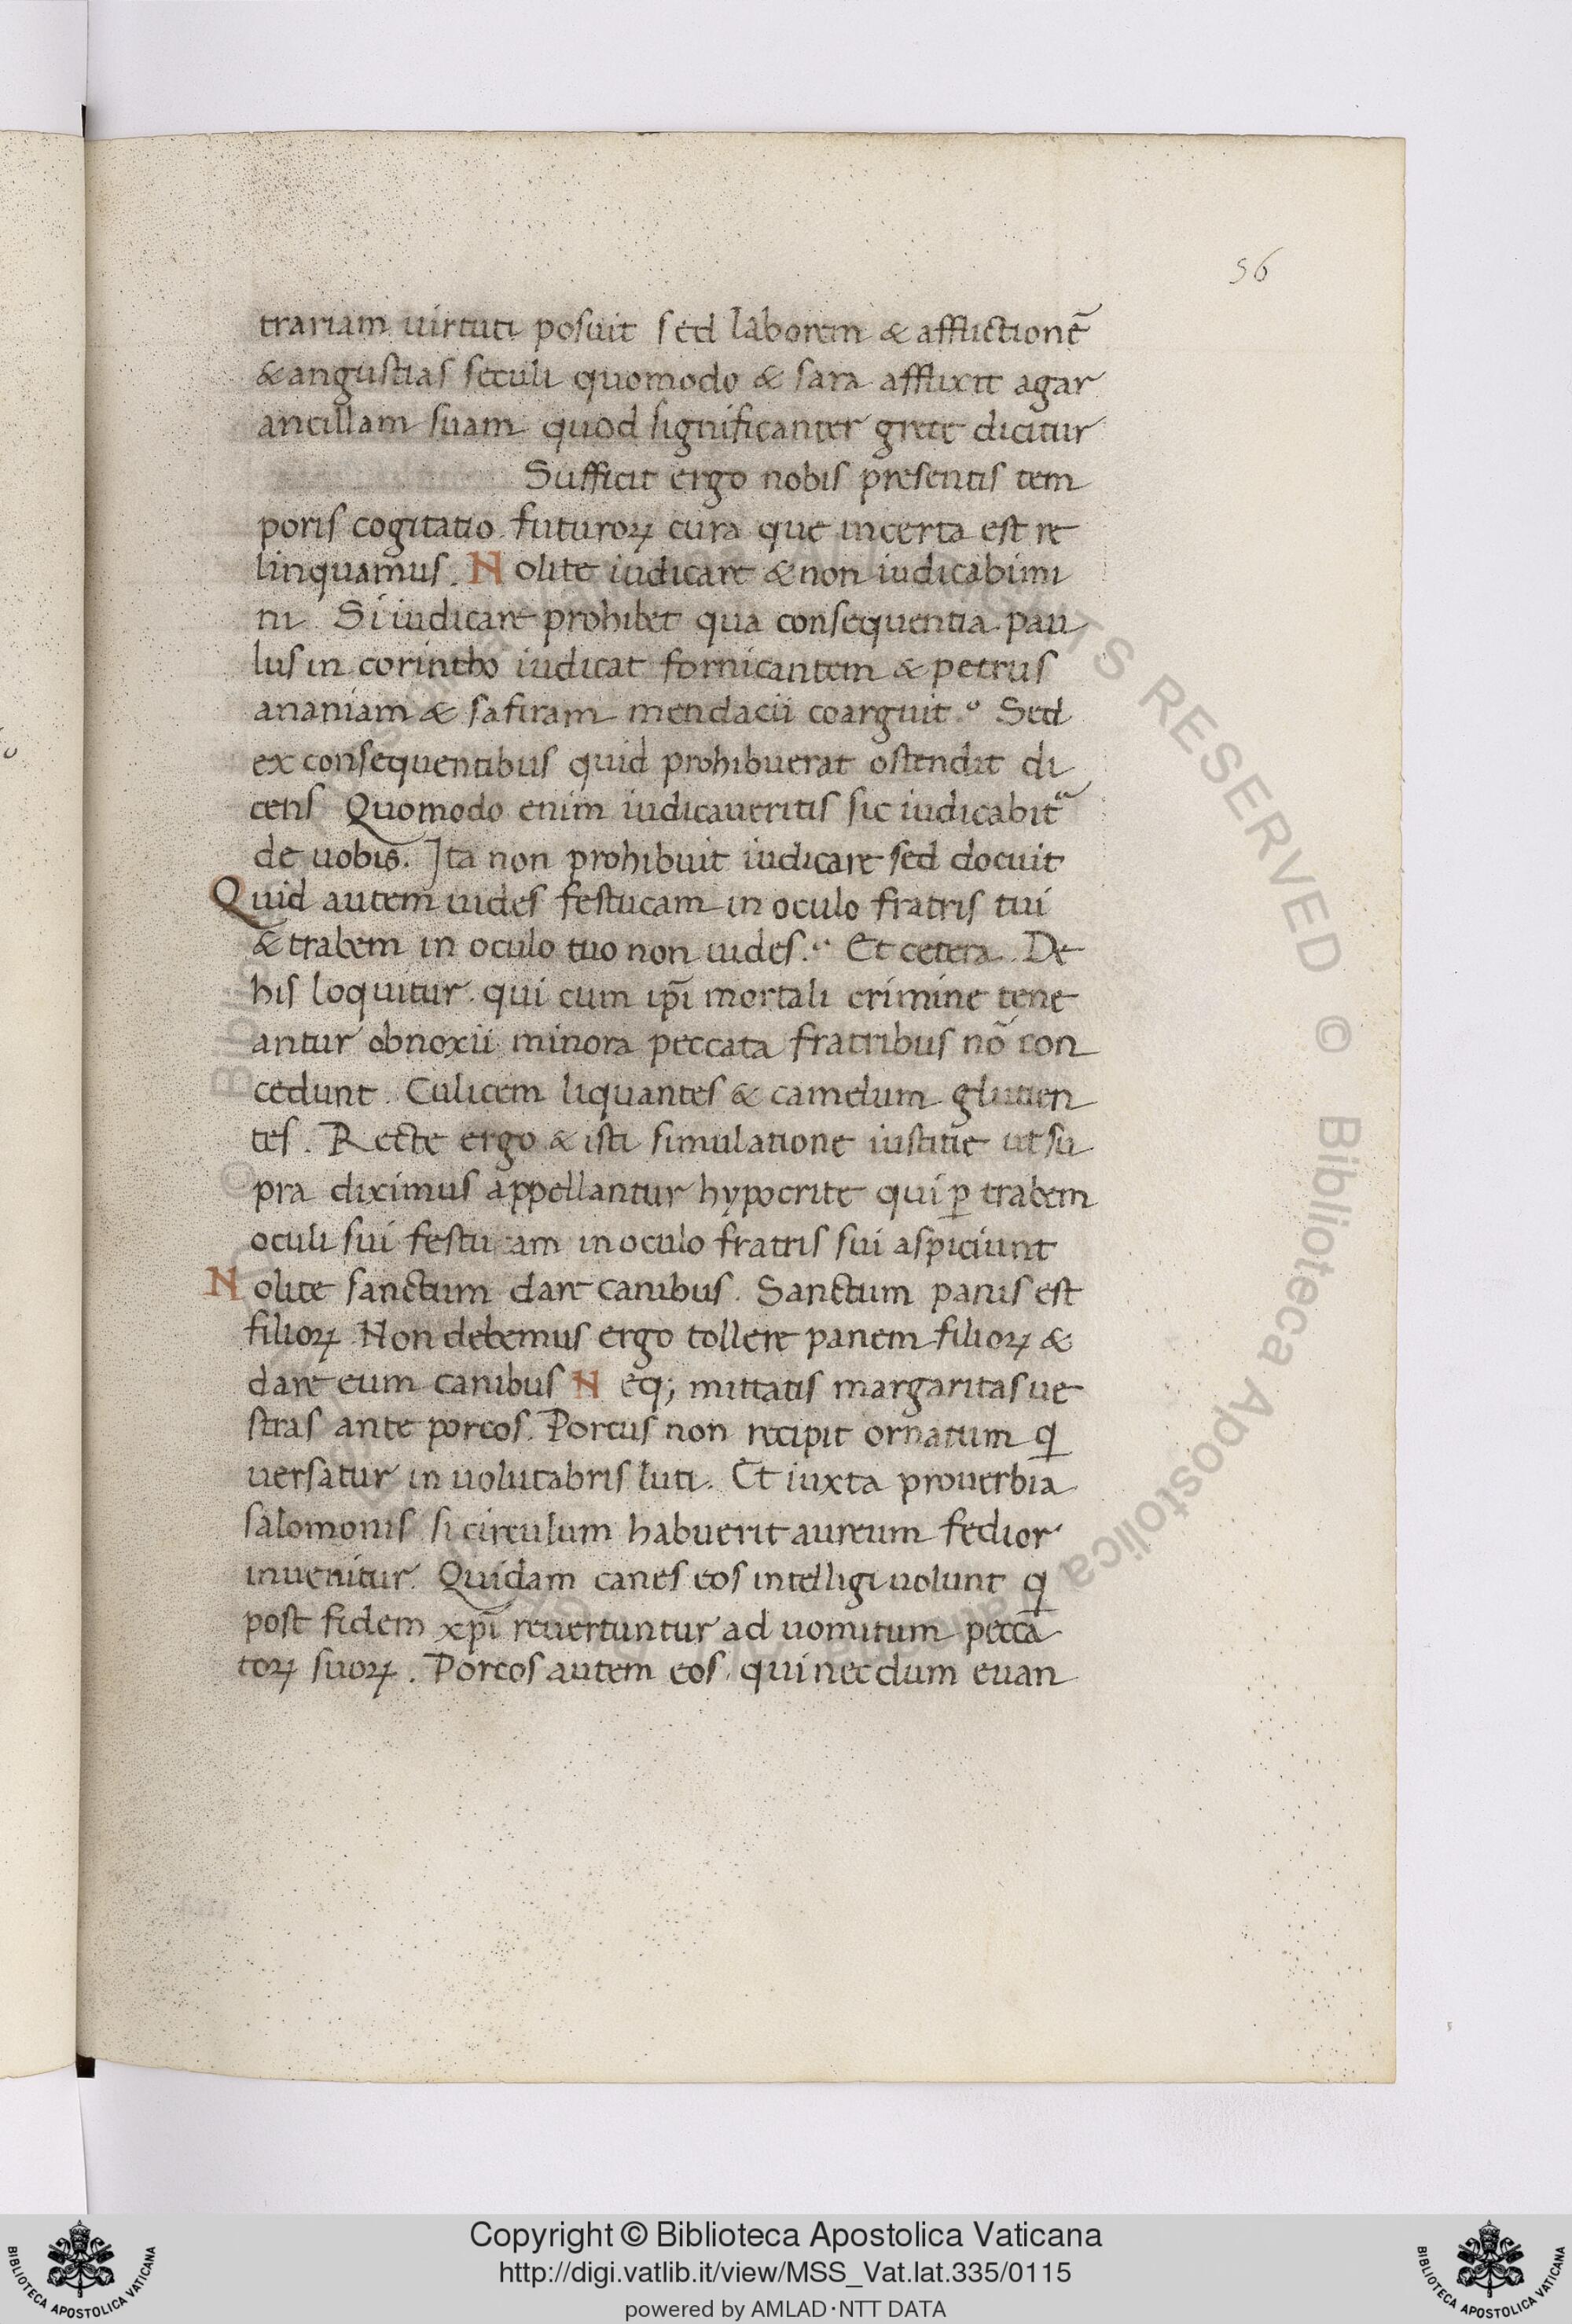 56
trariam uirtuti posuit sed laborem & afflictionē
& angustias seculi quomodo & sara afflixit agar
ancillam suam quod significanter grece dicitur
Sufficit ergo nobis presentis tem
poris cogitatio. futuroꝝ cura que incerta est re
linquamus. Nolite iudicare & non iudicabimi
ni. Si iudicare prohibet qua consequentia pau
lus in corintho iudicat fornicantem & petrus
ananiam & safiram mendacii coarguit? Sed
ex consequentibus quid prohibuerat ostendit di
cens Quomodo enim iudicaueritis sic iudicabit᷑
de uobis. Ita non prohibuit iudicare sed docuit
Quid autem uides festucam in oculo fratris tui
& trabem in oculo tuo non uides? Et cetera. De
his loquitur. qui cum ip̄i mortali crimine tene
antur obnoxii minora peccata fratribus nō con
cedunt. Culicem liquantes & camelum glutien
tes. Recte ergo & isti simulatione iustitie ut su
pra diximus appellantur hypocrite qui ꝑ trabem
oculi sui festucam in oculo fratris sui aspiciunt
Nolite sanctum dare canibus. Sanctum panis est
filioꝝ. Non debemus ergo tollere panem filioꝝ &
dare eum canibus Neq; mittatis margaritas ue
stras ante porcos. Porcus non recipit ornatum ꝗ
uersatur in uolutabris luti. Et iuxta prouerbia
salomonis si circulum habuerit aureum fedior
inuenitur. Quidam canes eos intelligi uolunt ꝗ
post fidem xp̄i reuertuntur ad uomitum pecca
toꝝ suoꝝ. Porcos autem eos. qui necdum euan
Copyright © Biblioteca Apostolica Vaticana
http://digi.vatlib.it/view/MSS_Vat.lat.335/0115
powered by AMLAD·NTT DATA
BIBLIOTECA APOSTOLICA VATICANA
BIBLIOTECA APOSTOLICA VATICANA